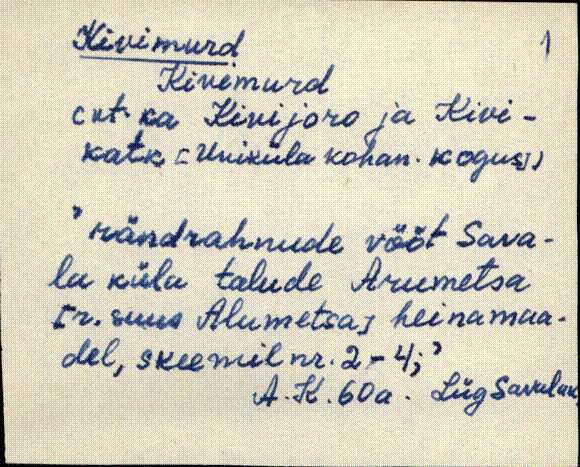 Kivimurd 1
Kivimurd
(vt. ka Kivijoro ja Kivi-
katk [Uniküla kohan. kogus])
'rändrahnude vööt Sava-
la küla talude Arumetsa
[r. suus Alumetsa] heinamaa-
del, skeemil nr. 2-4;'
A.K. 60a. Lüg Savala